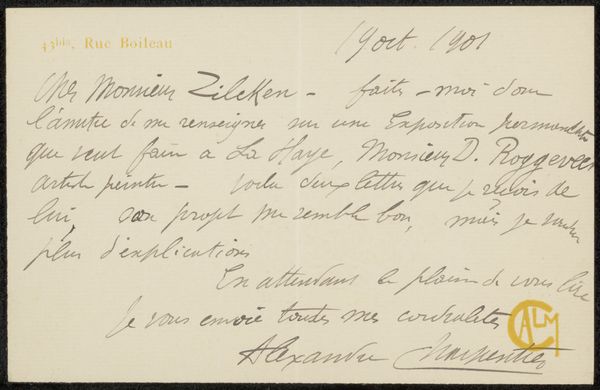 43bis, Rue Boileau
19 oct. 1901
Cher Monsieur Zilcken - faites-moi donc
l'amitié de me renseigner sur une Exposition permanente
que veut faire a La Haye, Monsieur D. Roggeveen
artiste peintre - voila deux lettres que je reçois de
lui, son projet me semble bon, mais je voudrais
plus d'explications
En attendant le plaisir de vous lire
je vous envoie toutes mes cordialités
Alexandre Charpentier
CALM